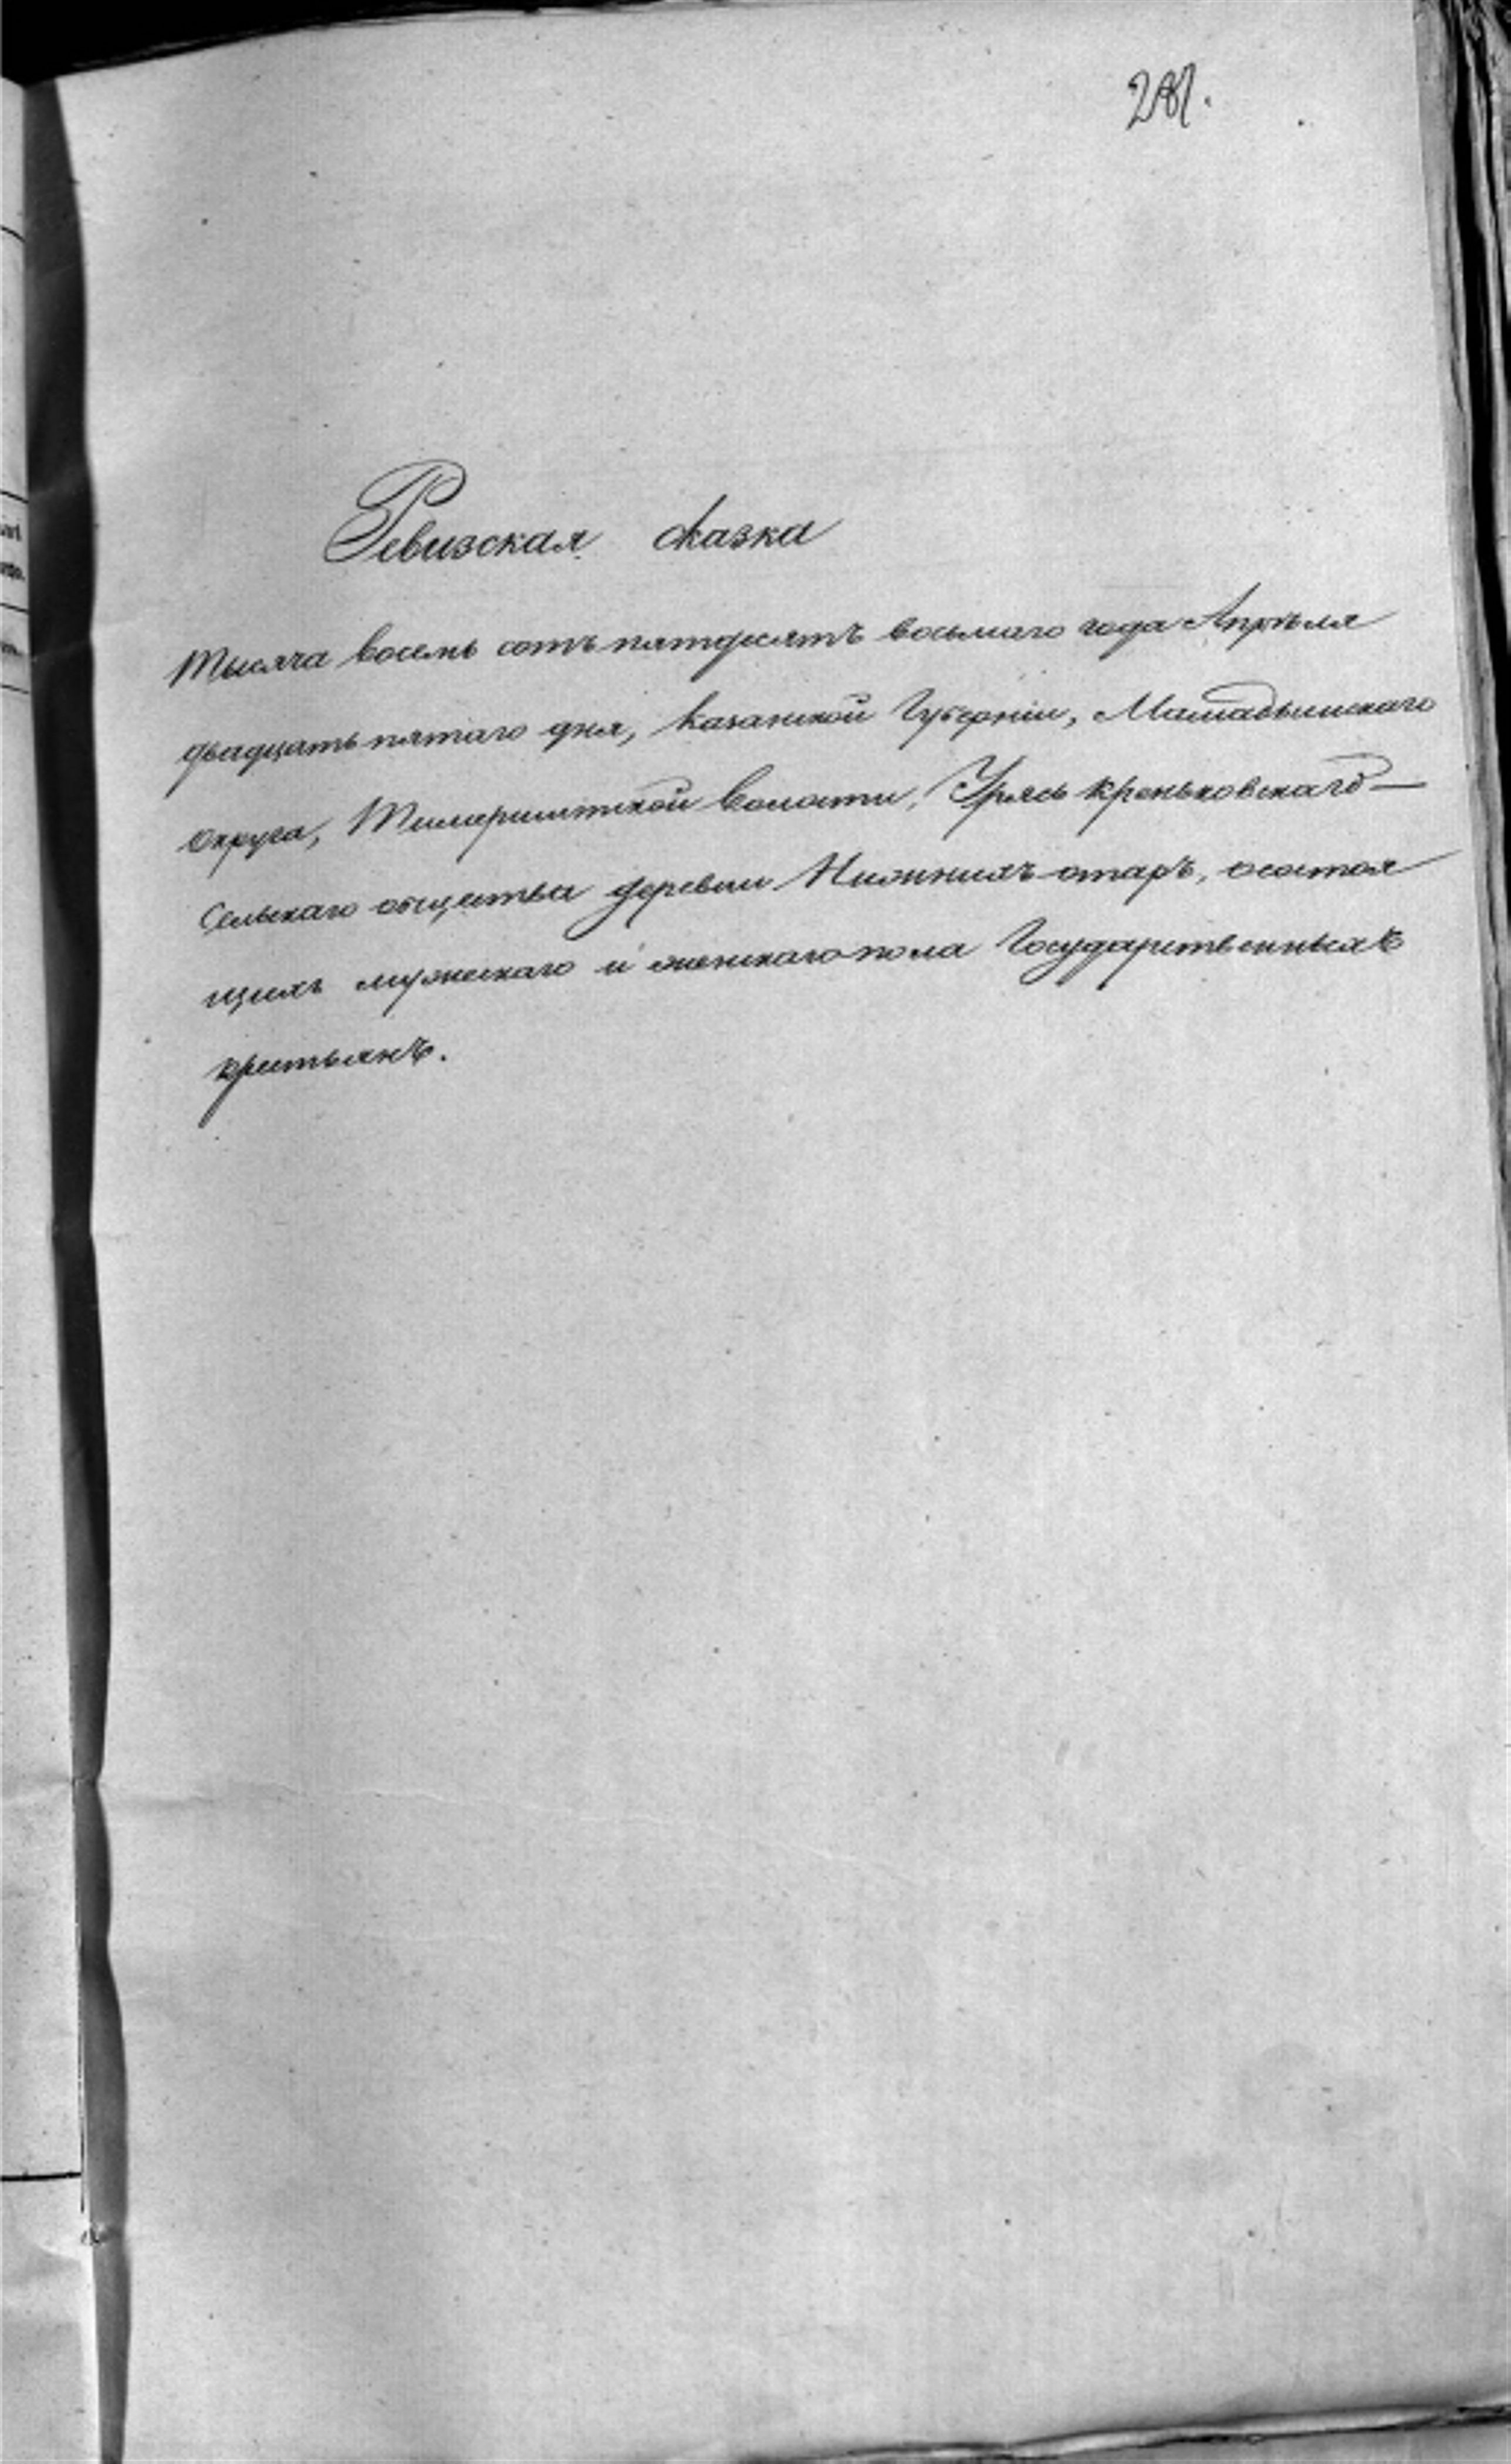 281.
Ревизская сказка
Тысяча восемь сотъ пятдесятъ восьмаго года Апрѣля
двадцать пятаго дня, Казанской Губерніи, Мамадышскаго
Округа, Волости, Уряс
Сельскаго общества деревни Нижнихъ отаръ, о состоя
щихъ мужескаго и женскаго пола Государственныхъ
крестьянъ.